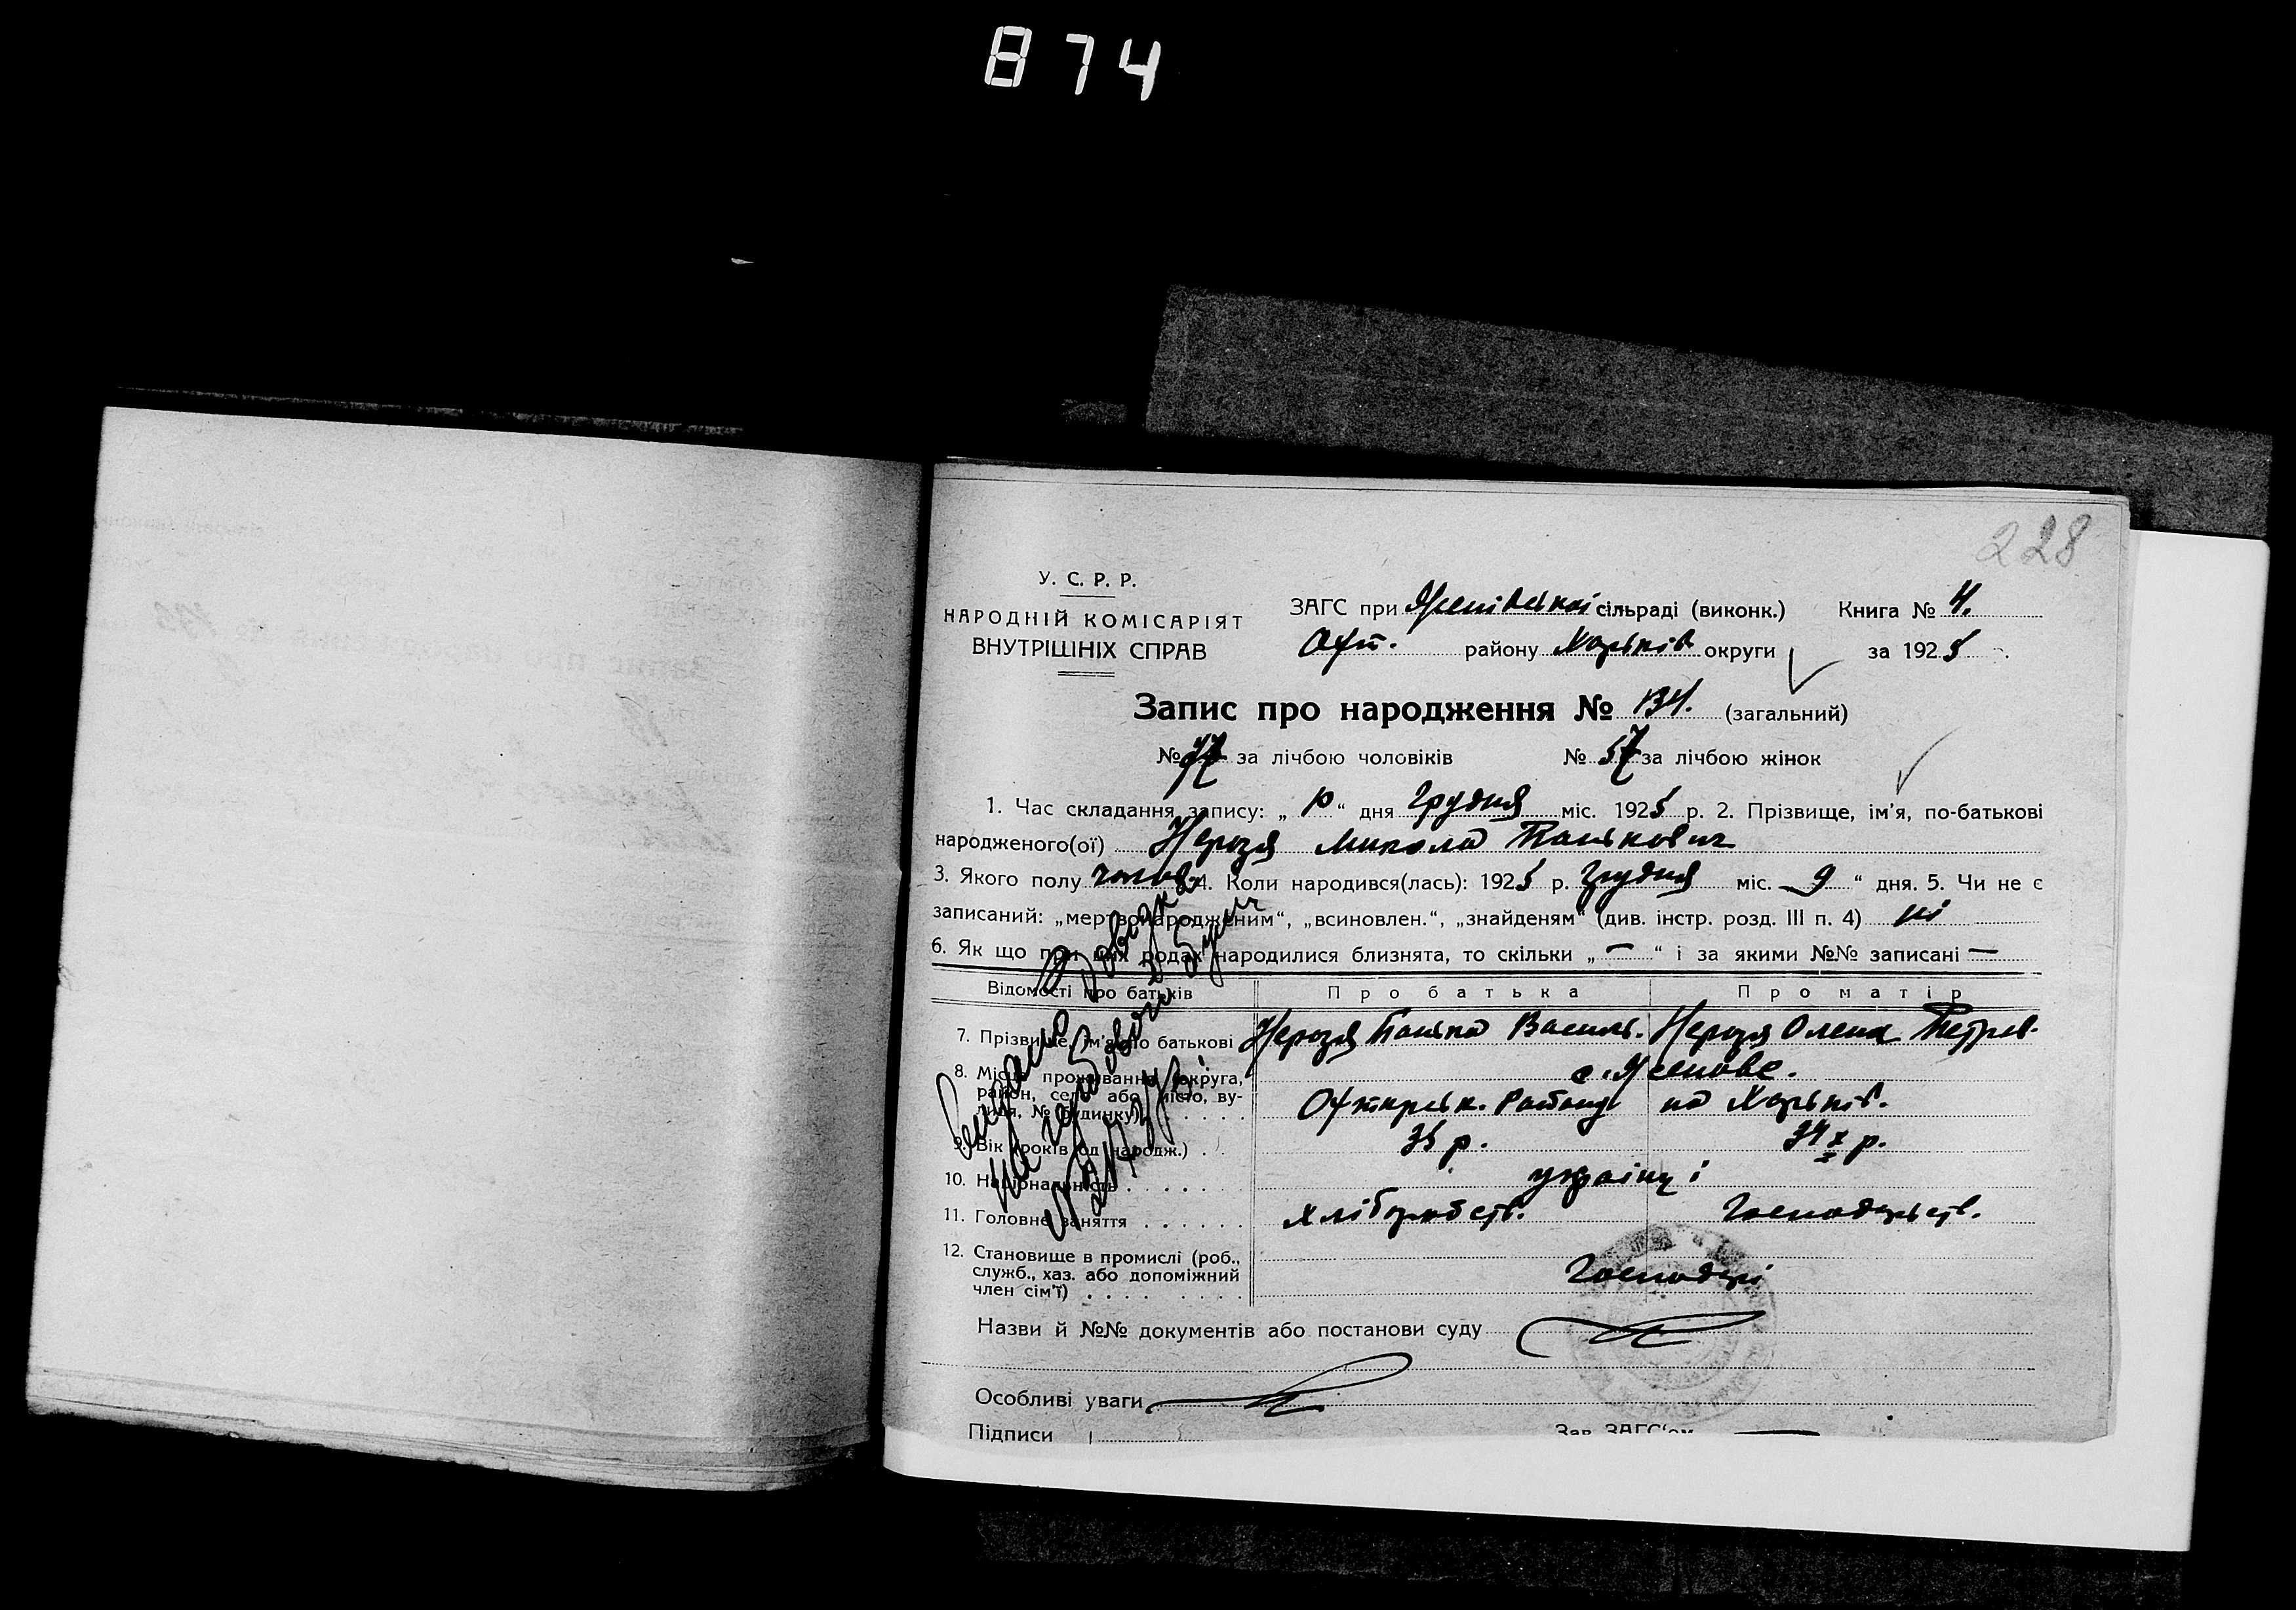 874
228
У. С. Р. Р.
НАРОДНІЙ КОМІСАРІЯТ
ВНУТРІШНІХ СПРАВ
ЗАГС при сільраді (виконк.) Книга № 4.
Охт. району Харьків округи за 1925
Запис про народження № 134. (загальний)
№ 77 за лічбою чоловіків № 57 за лічбою жінок
1. Час складання запису: „10“ дня Грудня міс. 1925 р. 2. Прізвище, ім'я, по-батькові
народженого(ої) Нерозя Микола Панькович
3. Якого полу чолов. 4. Коли народився(лась): 1925 р. Грудня міс. 9 “ дня. 5. Чи не є
записаний: „мертвонародженим“, „всиновлен.“, „знайденям“ (див. інстр. розд. III п. 4) ні
6. Як що при цих родах народилися близнята, то скільки „ — “ і за якими №№ записані —
Відомості про батьків Про батька Про матір
7. Прізвище, ім'я по батькові Нерозя Панько Василь. Нерозя Олена Петров.
8. Місце проживання (округа, район, село або місто, вулиця, № будинку) с. Ясенове.
Охтирськ. Району на Харьків.
9. Вік (років од народж.) 35 р. 34 р.
10. Національність українці
11. Головне заняття Хліборобств. Господарств.
12. Становище в промислі (роб., служб., хаз. або допоміжний член сім'ї) Господарі
Назви й №№ документів або постанови суду
Особливі уваги
Підписи Зав. ЗАГС'ом